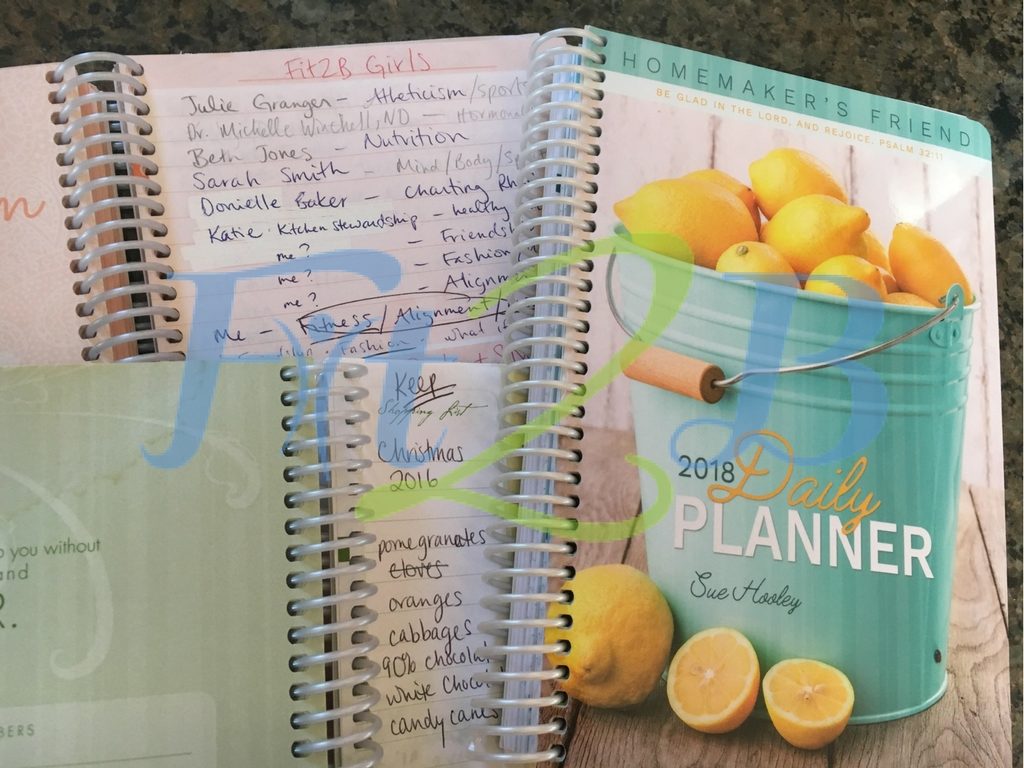 Fit2B Girls
Julie Granger - Athleticism/sport
Dr. Michelle Winchell, ND - Hormona
Beth Jones - Nutrition
Sarah Smith - Mind/Body/S
Donielle Baker - Charting
Katie Kitchen Stewardship - healthy
me? - Friendsh
me? - Fashion
me? - Alignm
Me - Fitness/Alignment/
Fashion what
Keep
Shopping List
Christmas
2016
pomegranates
cloves
oranges
cabbages
90% chocola
white choc
candy canes
o you without
and
R.
BERS
n
HOMEMAKER'S FRIEND
BE GLAD IN THE LORD, AND REJOICE. PSALM 32:11
2018 Daily
PLANNER
Sue Hooley
Fit2B